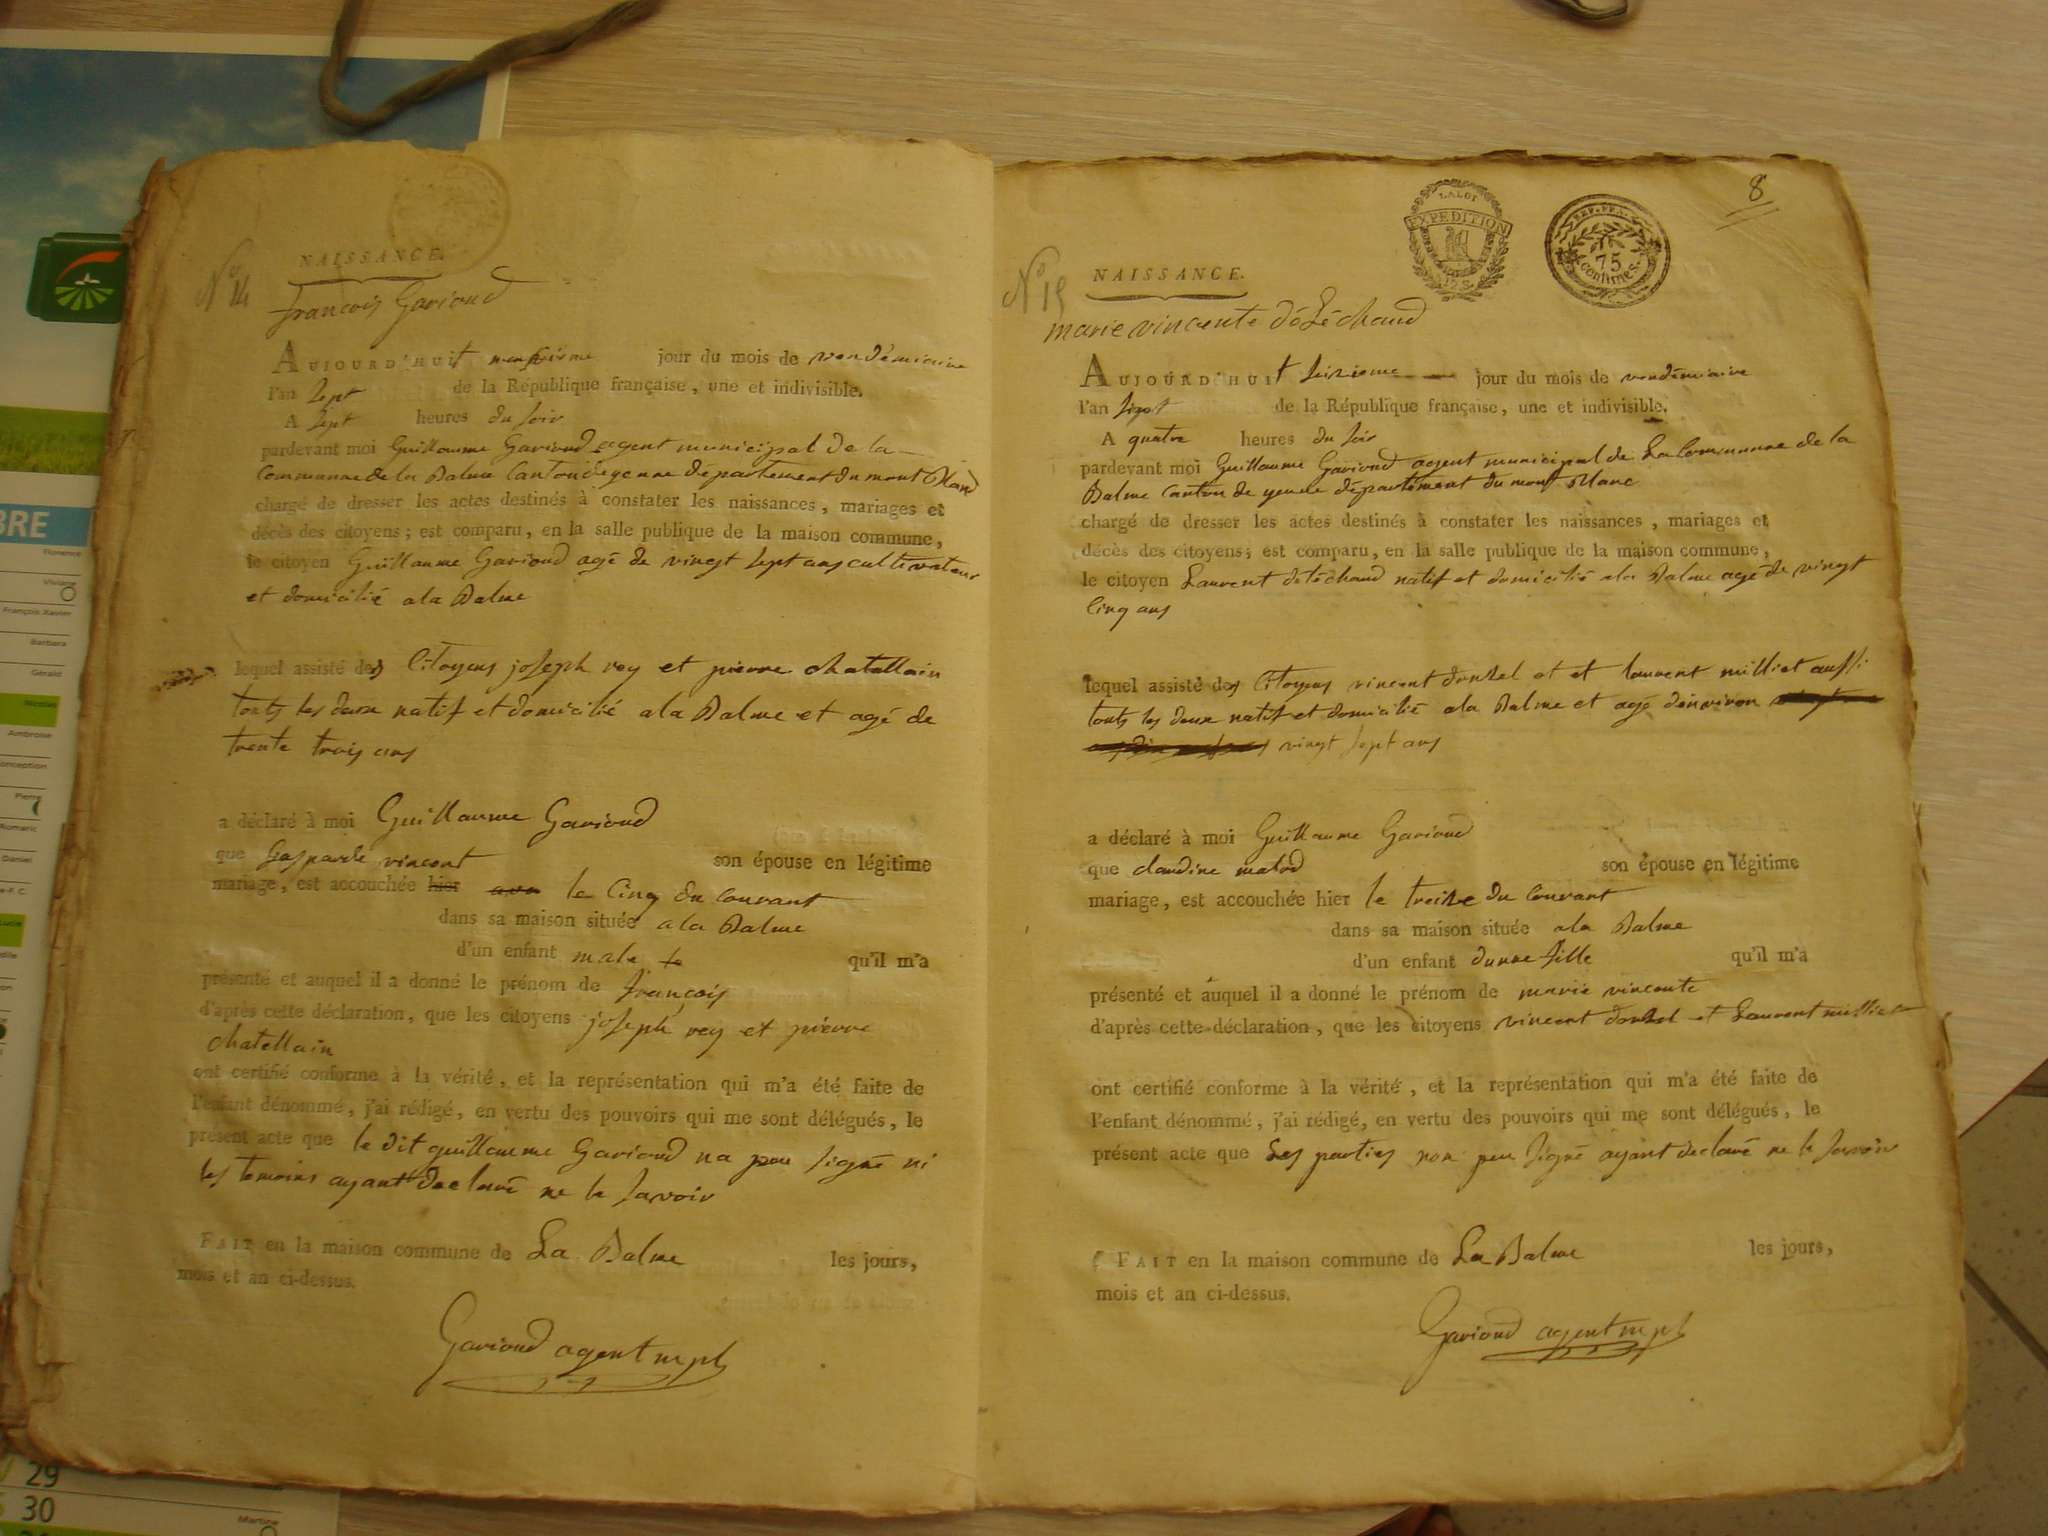 BRE
Florence
Viviane
François-Xavier
Barbara
Gérald
Nicolas
Ambroise
Pierre
Romaric
Daniel
29
30
Martine
NAISSANCE.
N° 14
francois Gavioud
AUJOURD'HUIt neufvieme jour du mois de vendémiaire
l'an sept de la République française, une et indivisible.
A sept heures du soir
pardevant moi Guillaume Gavioud agent municipal de la
Commune de la Balme Canton de yenne département du mont Blanc
chargé de dresser les actes destinés à constater les naissances, mariages et
décès des citoyens; est comparu, en la salle publique de la maison commune,
le citoyen Guillaume Gavioud agé de vingt sept ans cultivateur
et domicilié a la Balme
lequel assisté des Citoyens joseph rey et pierre chatellain
touts les deux natif et domicilié a la Balme et agé de
trente trois ans
a déclaré à moi Guillaume Gavioud
que Gasparde vincent son épouse en légitime
mariage, est accouchée hier le Cinq du Courant
dans sa maison située a la Balme
d'un enfant male qu'il m'a
présenté et auquel il a donné le prénom de françois
d'après cette déclaration, que les citoyens joseph rey et pierre
chatellain
ont certifié conforme à la vérité, et la représentation qui m'a été faite de
l'enfant dénommé, j'ai rédigé, en vertu des pouvoirs qui me sont délégués, le
présent acte que le dit guillaume Gavioud na peu signé ni
les temoins ayant declaré ne le savoir
FAIT en la maison commune de La Balme les jours,
mois et an ci-dessus.
Gavioud agent mpl
8
LA LOI
EXPEDITION
REP. FRA.
75
centimes.
N° 15
NAISSANCE.
marie vincente déléchaud
AUJOURD'HUIt seizieme jour du mois de vendémiaire
l'an sept de la République française, une et indivisible.
A quatre heures du soir
pardevant moi Guillaume Gavioud agent municipal de La Commune de la
Balme Canton de yenne département du mont Blanc
chargé de dresser les actes destinés à constater les naissances, mariages et
décès des citoyens; est comparu, en la salle publique de la maison commune,
le citoyen Laurent deléchaud natif et domicilié a la Balme agé de vingt
Cinq ans
lequel assisté des Citoyens vincent et et laurent milliet aussi
touts les deux natif et domicilié a la Balme et agé d'environ
vingt sept ans
a déclaré à moi Guillaume Gavioud
que claudine son épouse en légitime
mariage, est accouchée hier le treize du Courant
dans sa maison située a la Balme
d'un enfant dunne fille qu'il m'a
présenté et auquel il a donné le prénom de marie vincente
d'après cette déclaration, que les citoyens vincent et Laurent milliet
ont certifié conforme à la vérité, et la représentation qui m'a été faite de
l'enfant dénommé, j'ai rédigé, en vertu des pouvoirs qui me sont délégués, le
présent acte que Les parties non peu signé ayant declaré ne le savoir
FAIT en la maison commune de La Balme les jours,
mois et an ci-dessus.
Gavioud agent mpl